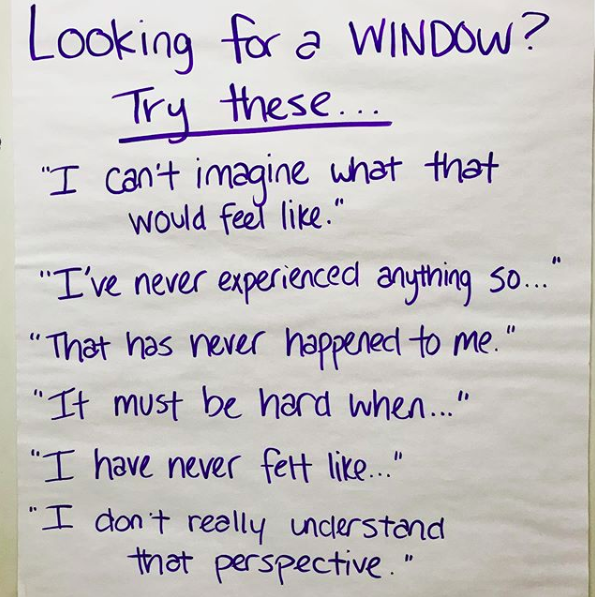 Looking for a WINDOW?
Try these...
"I can't imagine what that
would feel like."
"I've never experienced anything so..."
"That has never happened to me."
"It must be hard when..."
"I have never felt like..."
"I don't really understand
that perspective."